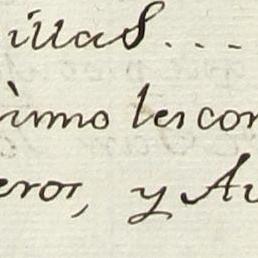 illas...
imo les con
eros, y Au